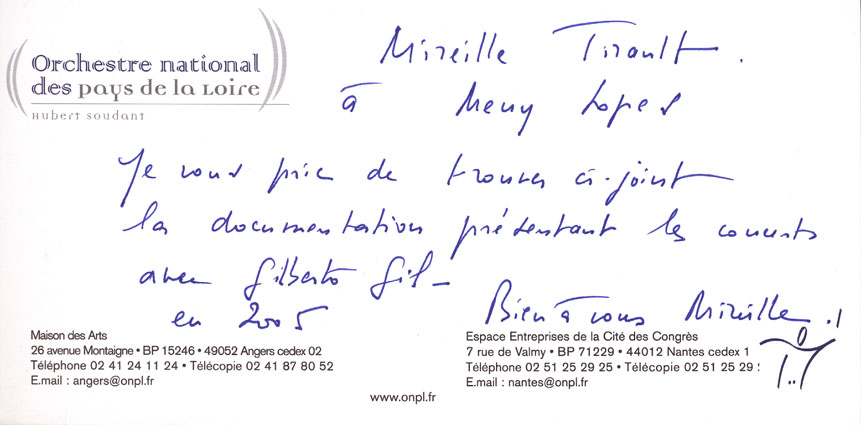 Orchestre national
des pays de la Loire
Hubert Soudant
Mireille Tirault.
à Meny Lopes
Je vous prie de trouver ci-joint
la documentation présentant les concerts
avec Gilberto Gil -
en 2005
Bien à vous Mireille.
Maison des Arts
26 avenue Montaigne • BP 15246 • 49052 Angers cedex 02
Téléphone 02 41 24 11 24 • Télécopie 02 41 87 80 52
E.mail : angers@onpl.fr
Espace Entreprises de la Cité des Congrès
7 rue de Valmy • BP 71229 • 44012 Nantes cedex 1
Téléphone 02 51 25 29 25 • Télécopie 02 51 25 29
E.mail : nantes@onpl.fr
www.onpl.fr